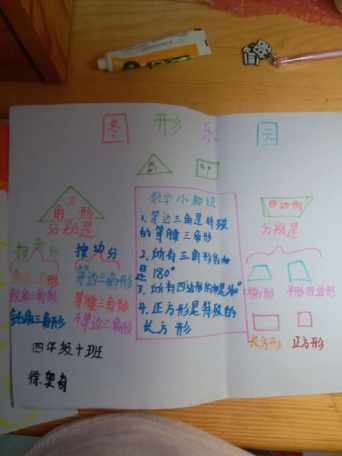 图 形 乐 园
三
角 形
分别是
按角分
按边分
等边三角形
直角三角形
等腰三角形
钝角三角形
不等边三角形
四年级十班
数学小知识
1.等边三角是特殊
的等腰三角形
2.所有三角形的和
是180°
4.正方形是特殊的
长方形
四边形
分别是
梯形
平行四边形
长方形
正方形